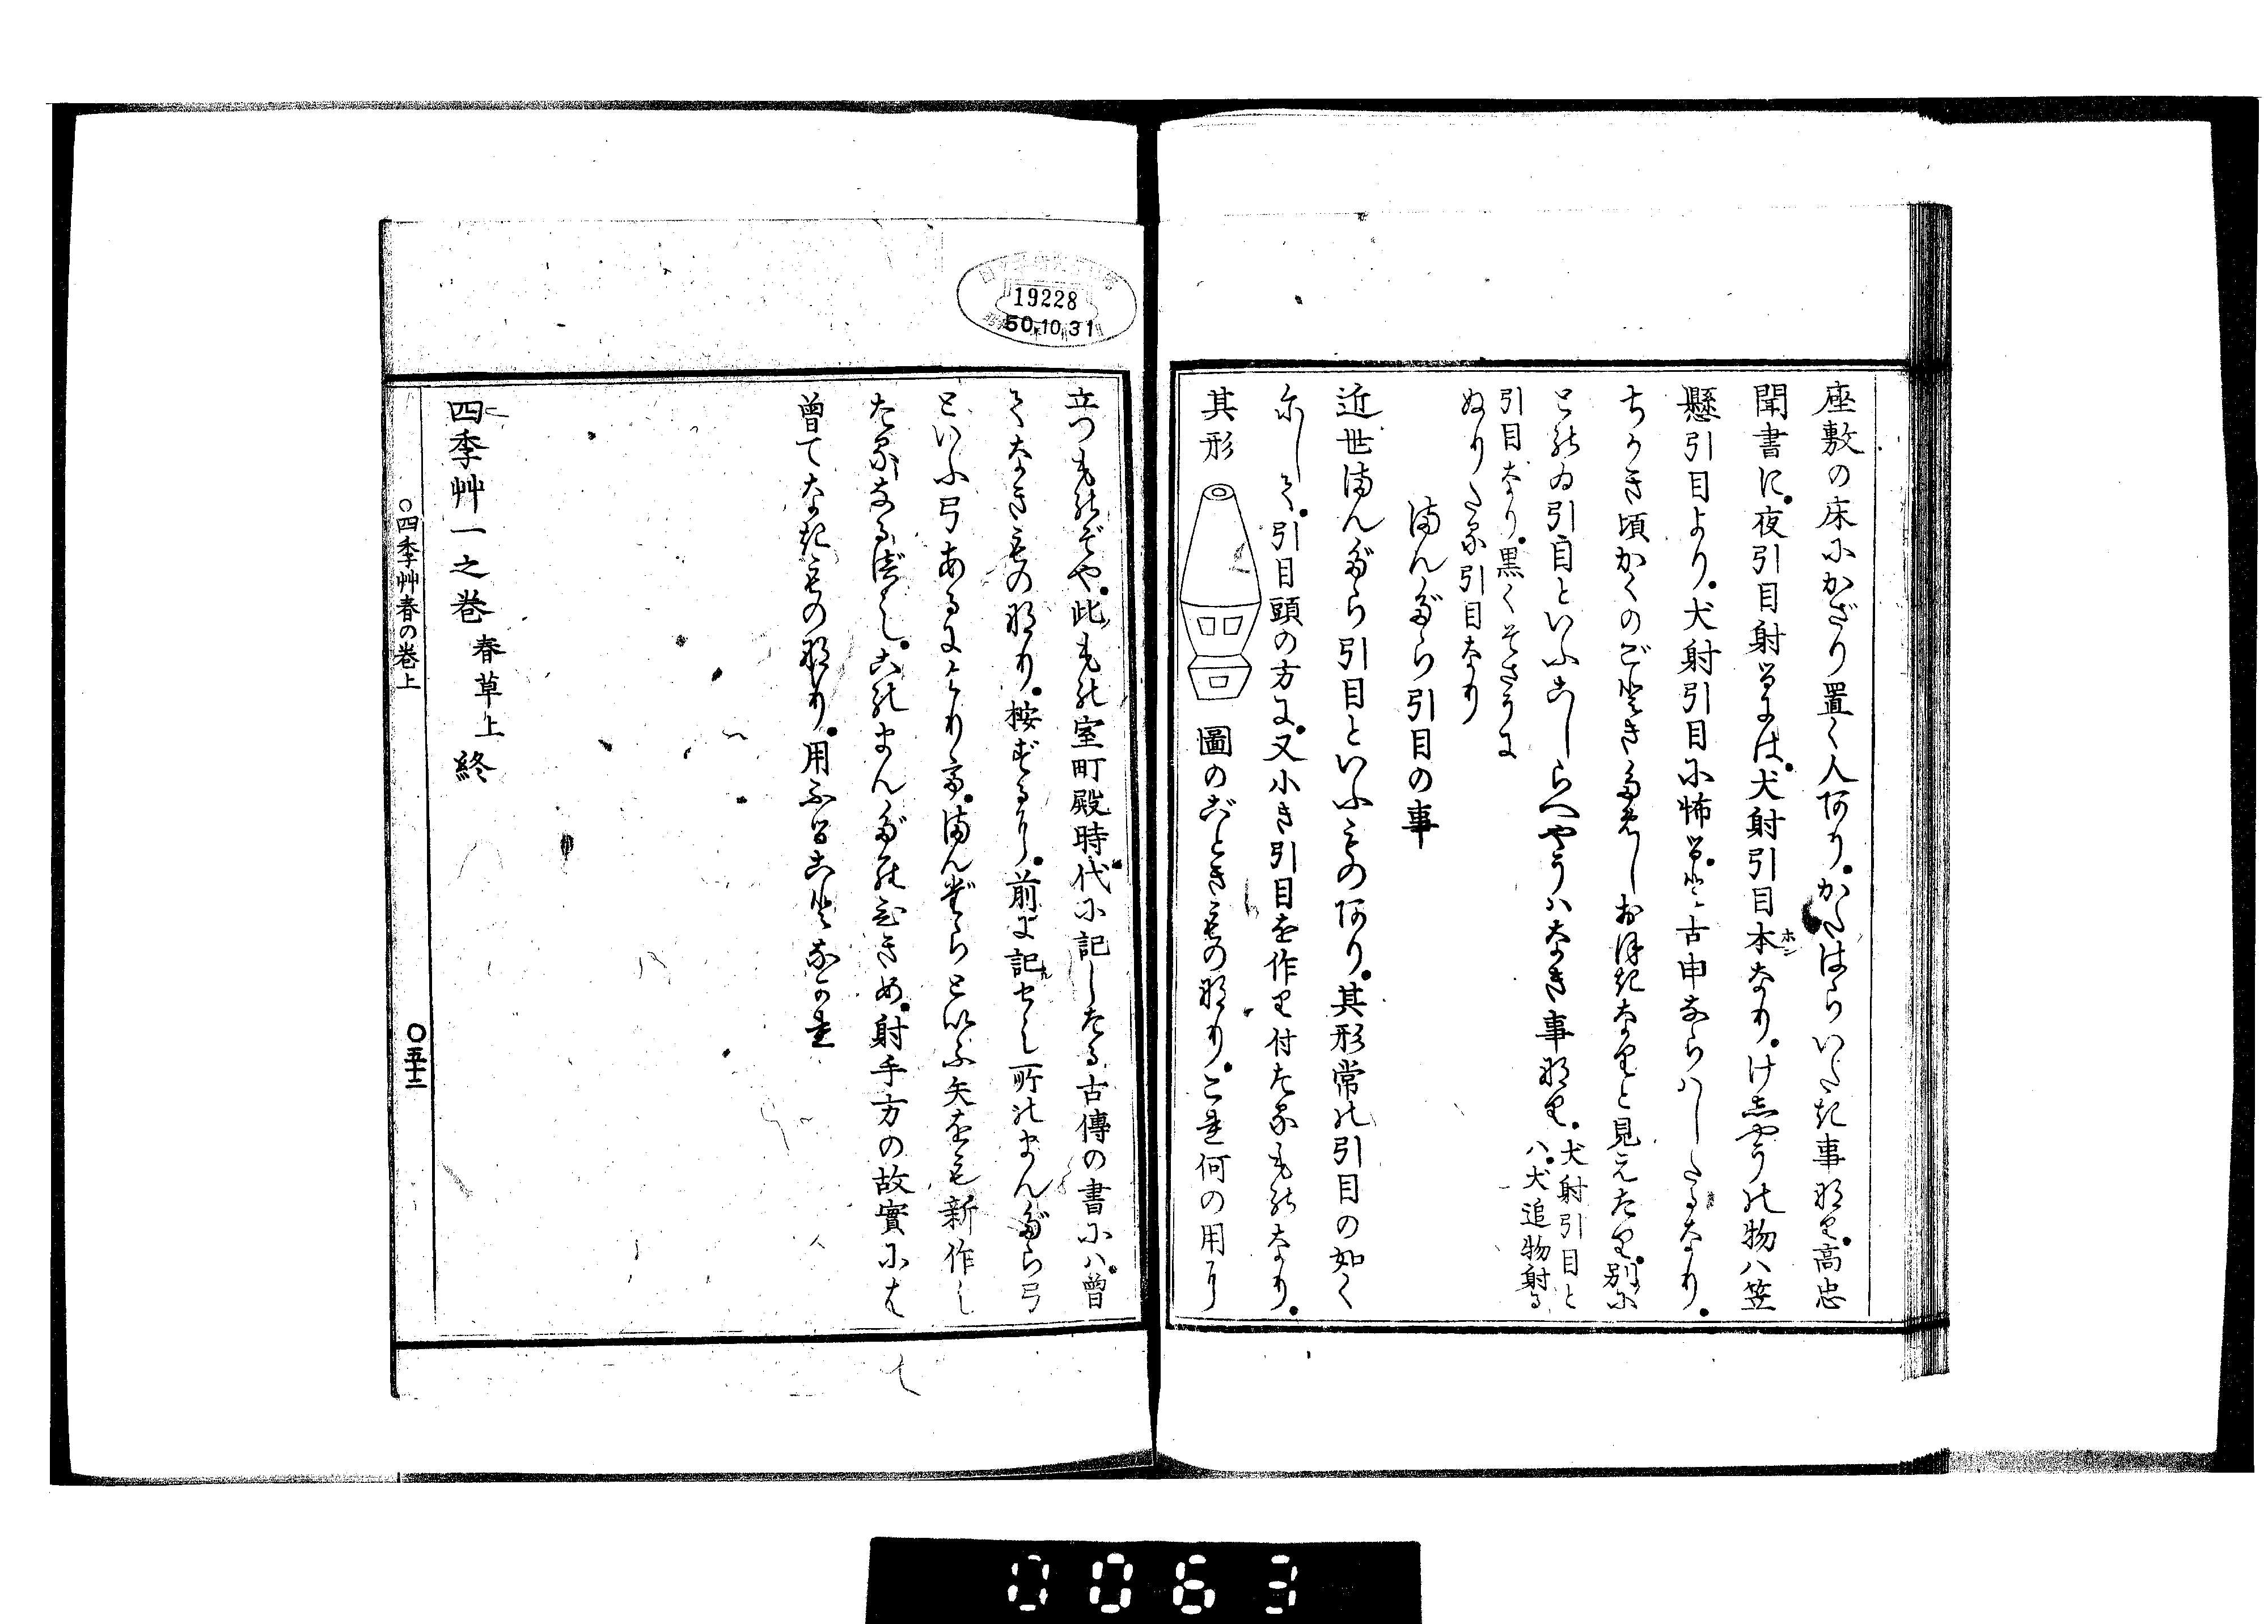 座敷の床にかざり置く人あり。かたはらいたき事なり。高忠
聞書に。夜引目射るには。犬射引目本なり。けしやうの物ハ笠
懸引目より。犬射引目に怖るゝと。古申ならハしたるなり。
ちかき頃かくのごときためしおほきなりと見えたり。別に
とのゐ引目といふこしらへやうハなき事なり。
犬射引目と
ハ。犬追物射る
引目なり。黒くそさうに
ぬりたる引目なり
まんだら引目の事
近世まんだら引目といふものあり。其形常の引目の如く
にして。引目頭の方に。又小き引目を作り付たるものなり。
其形
圖のごときもの也。これ何の用に
立つものぞや。此もの室町殿時代に記したる古傳の書にハ。曾
てなきもの也。按ずるに。前に記せし所のまんだら弓
といふ弓あるによりて。まんだらといふ矢をも新作し
たるなるべし。このまんだらひきめ。射手方の故實には
曾てなきもの也。用ふることなかれ
四季艸一之巻
春草上
終
○四季艸春の巻上
○五十二
19228
50.10.31
0063